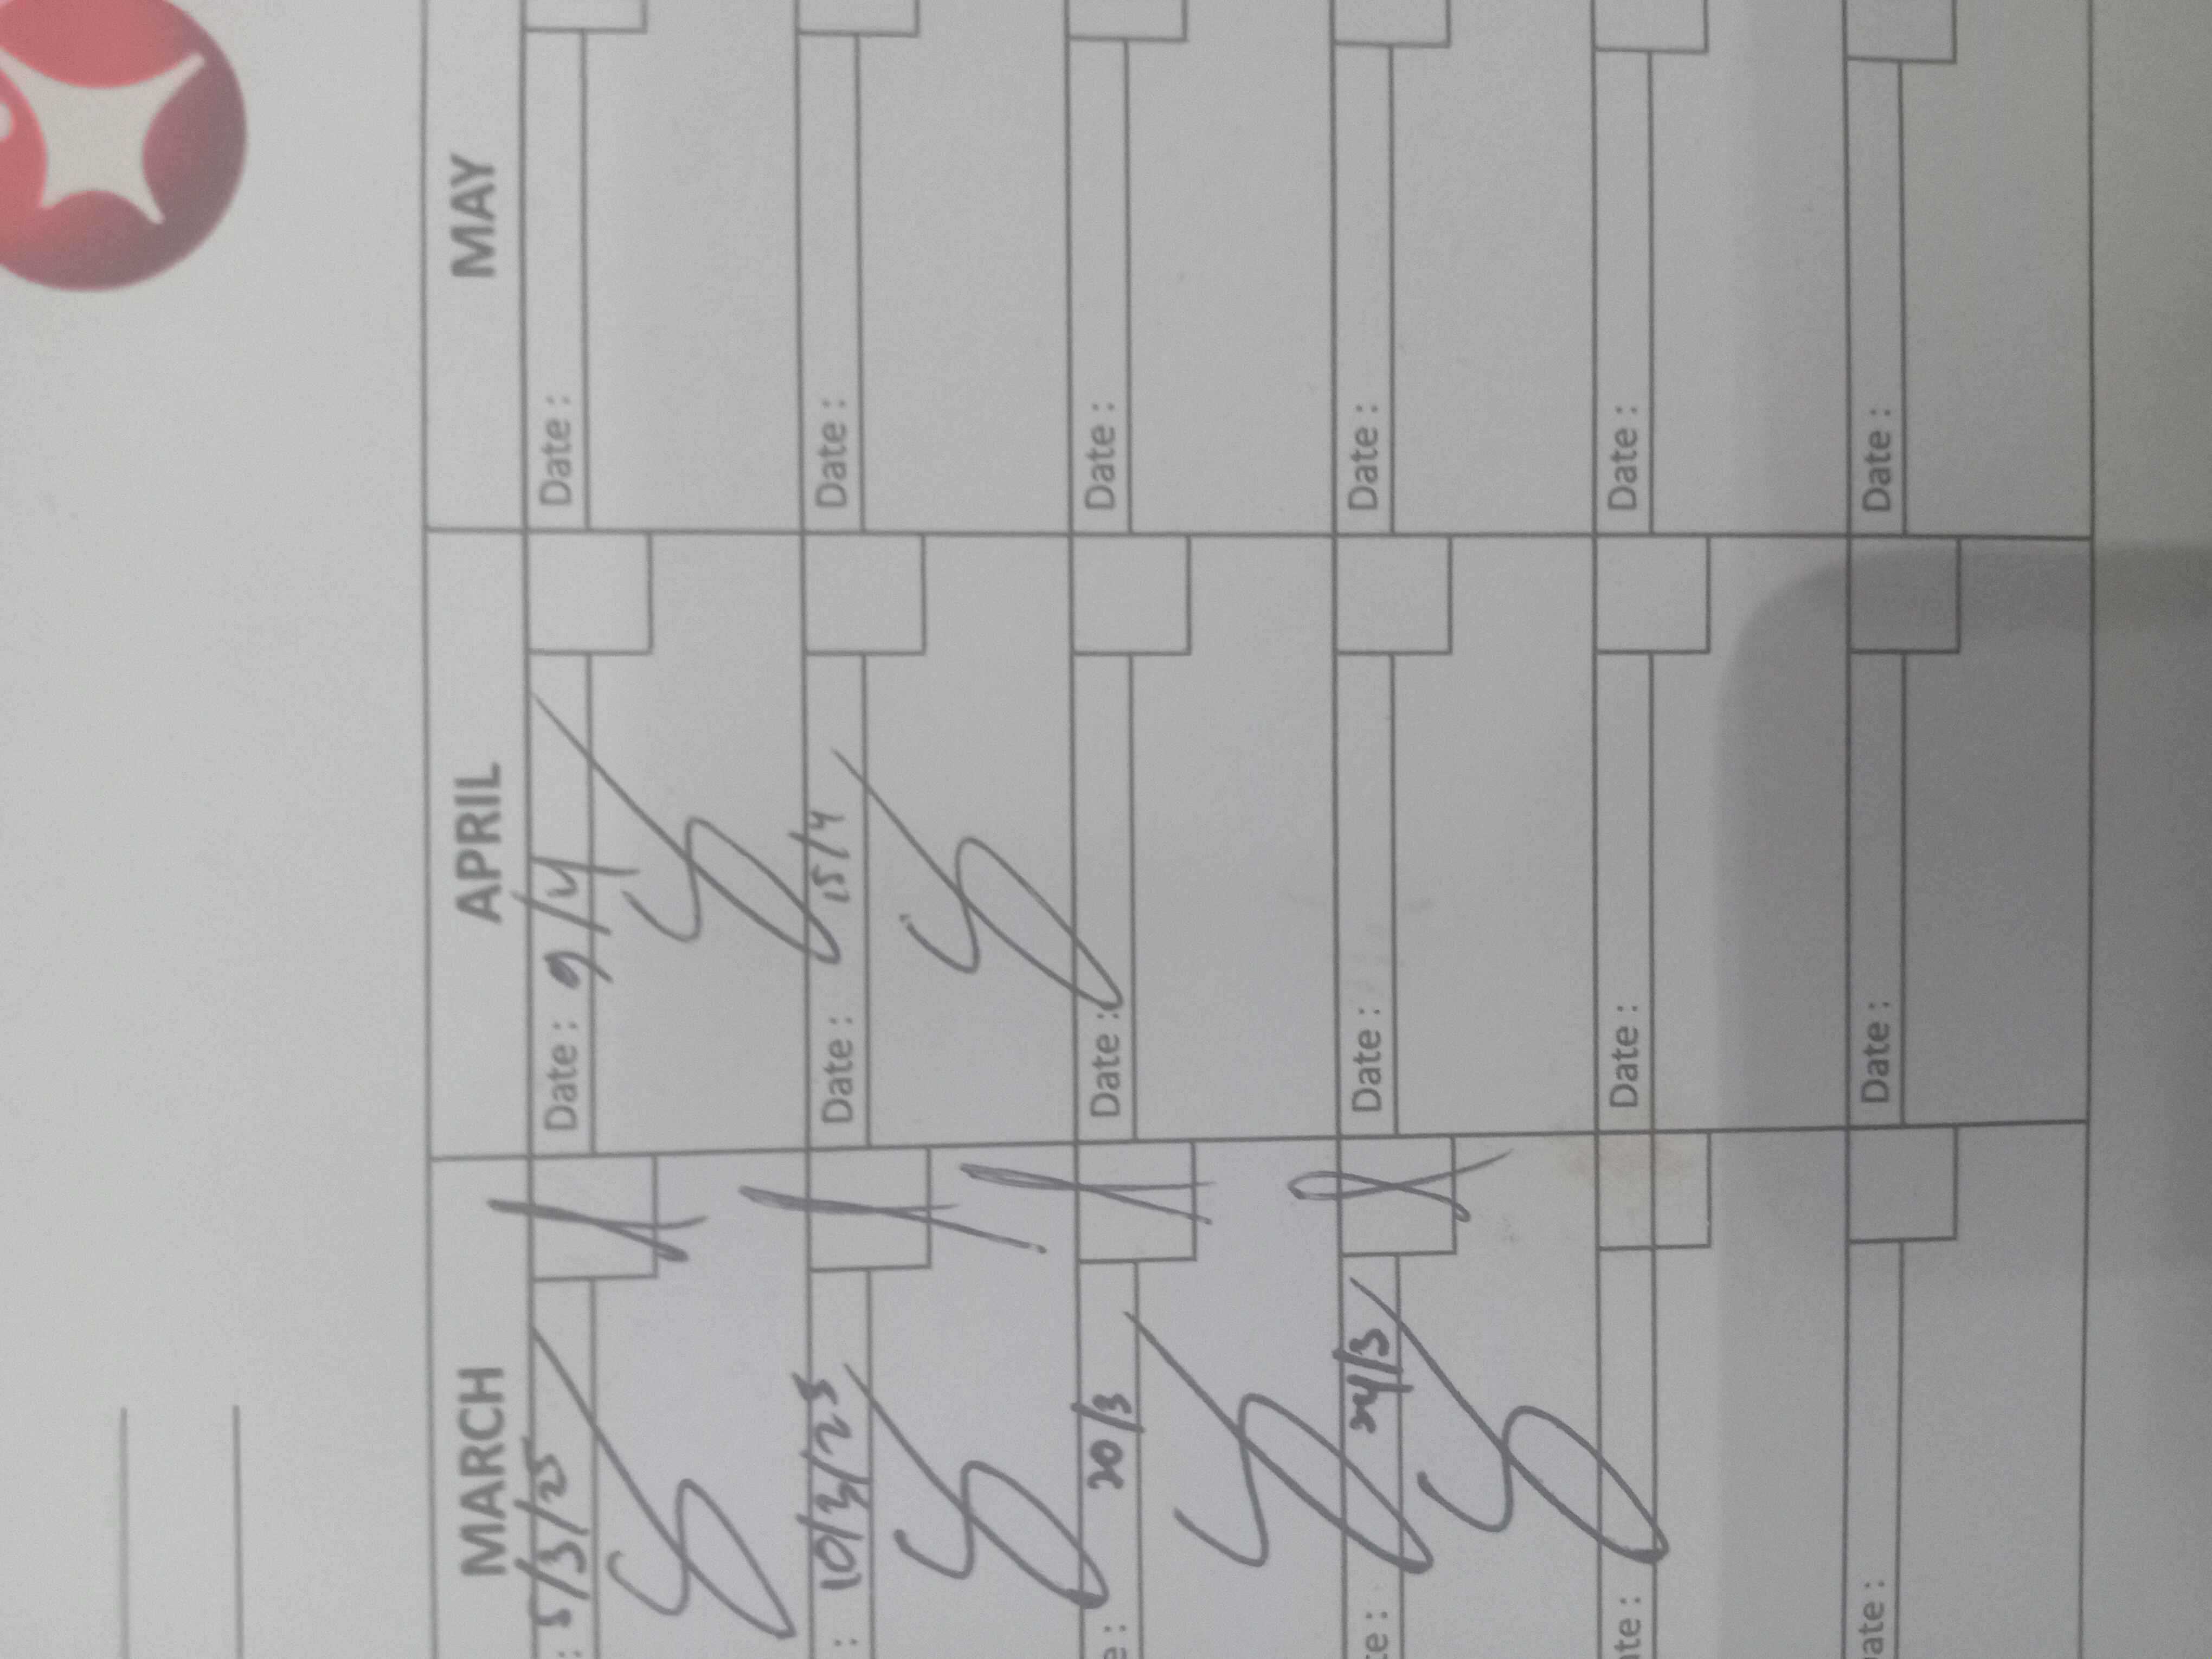 MARCH APRIL MAY
: 5/3/25 Date : 9/4 Date :
: 10/3/25 Date : 15/4 Date :
e : 20/3 Date : Date :
te : 24/3 Date : Date :
ate : Date : Date :
Date : Date : Date :